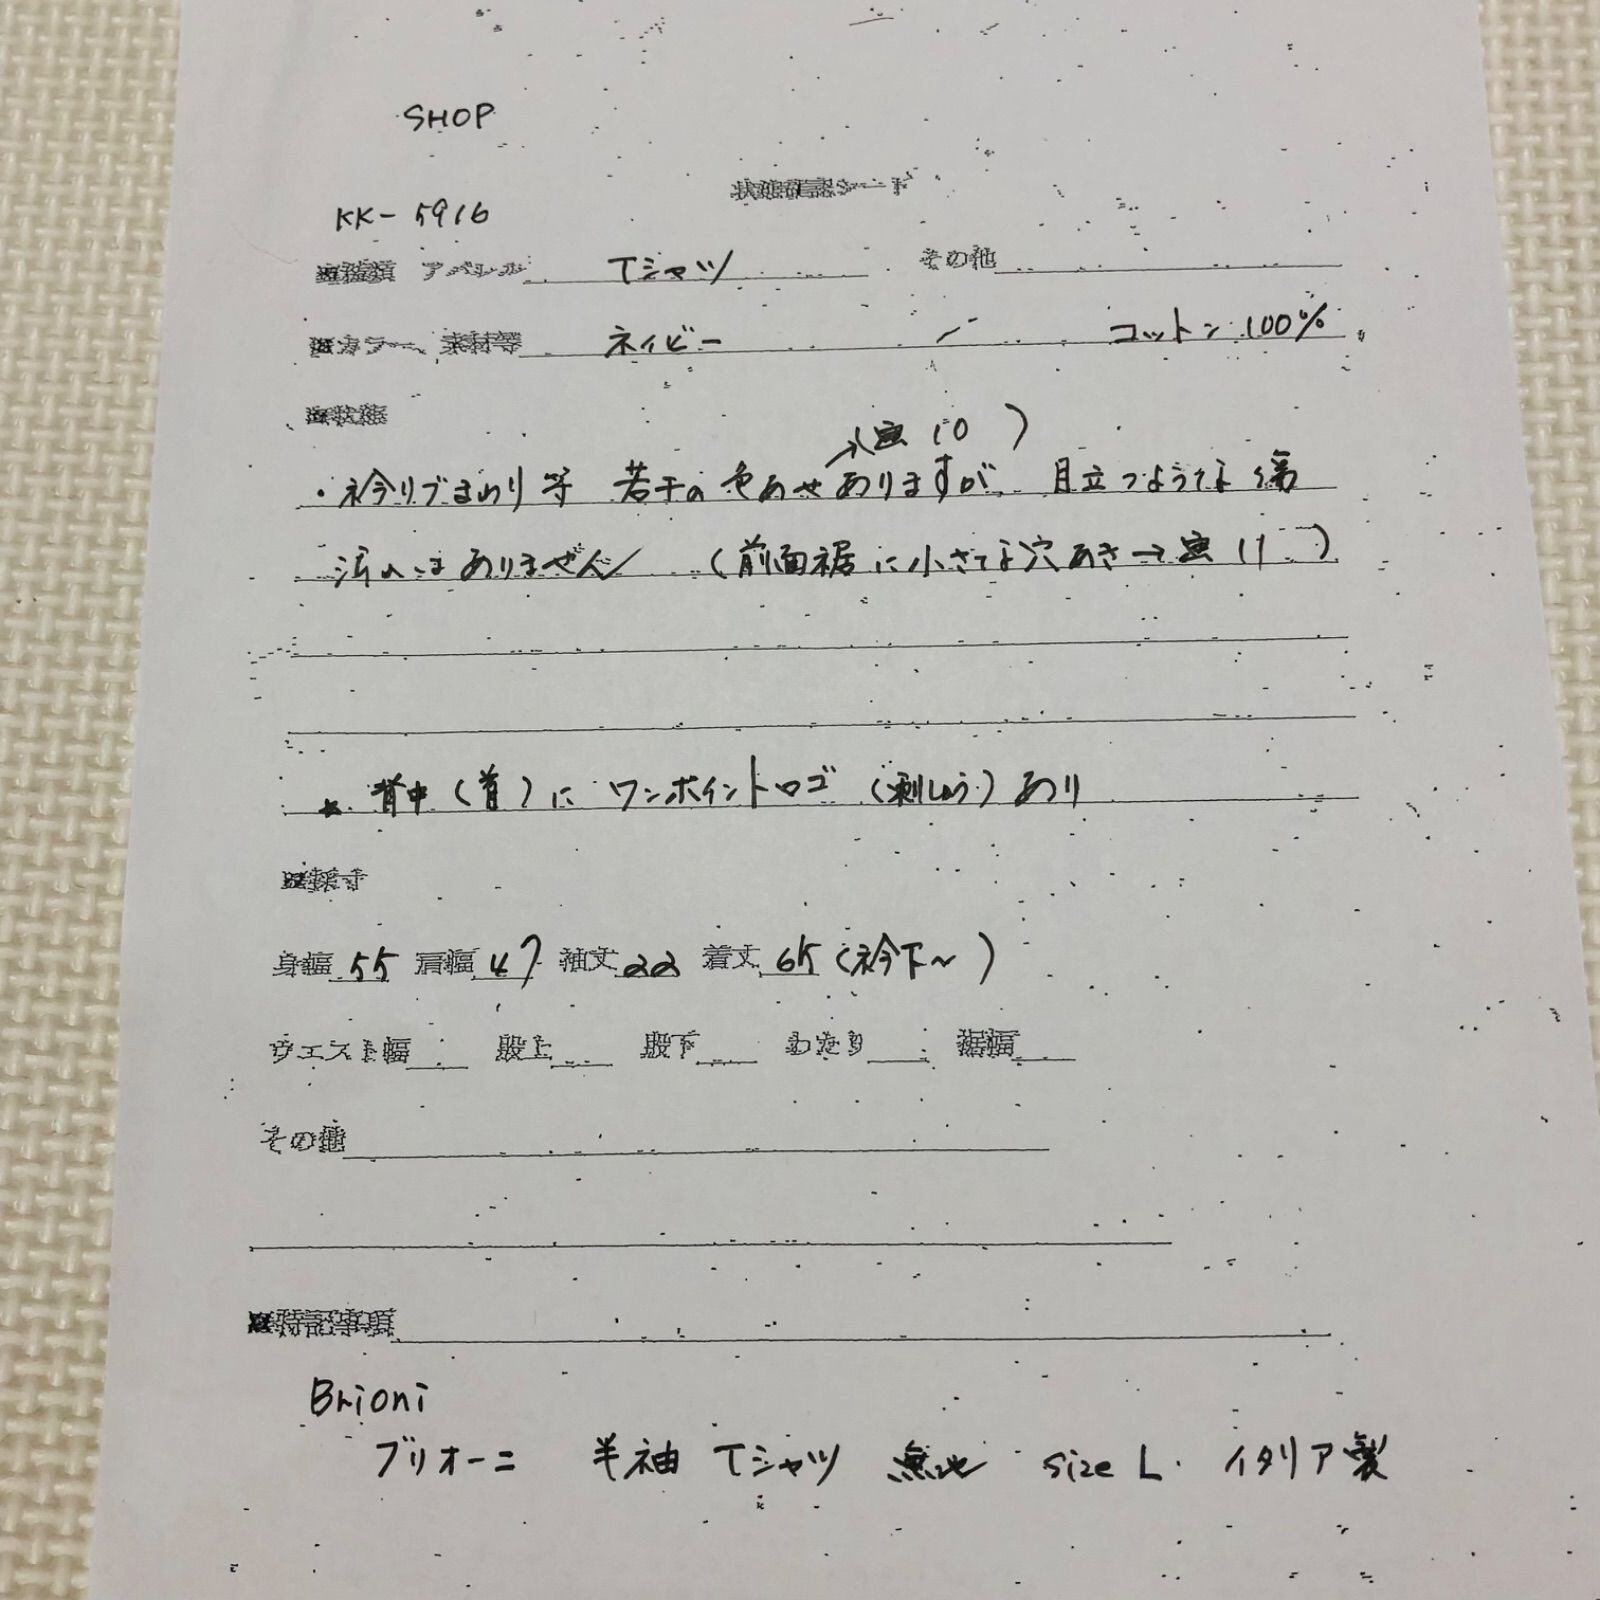 SHOP
状態確認シート
KK-5916
■種類 アパレル Tシャツ その他
■カラー、素材等 ネイビー / コットン 100%
■状態
→(画 10 )
・衿リブまわり等 若干の色あせありますが、目立つような傷
汚れはありません (前面裾に小さな穴あき→画 11 )
★ 背中(首)に ワンポイントロゴ (刺しゅう) あり
■採寸
身幅 55 肩幅 47 袖丈 22 着丈 65 (衿下~ )
ウエスト幅 股上 股下 わたり 裾幅
その他
■特記事項
Brioni
ブリオーニ 半袖 Tシャツ 無地 size L. イタリア製